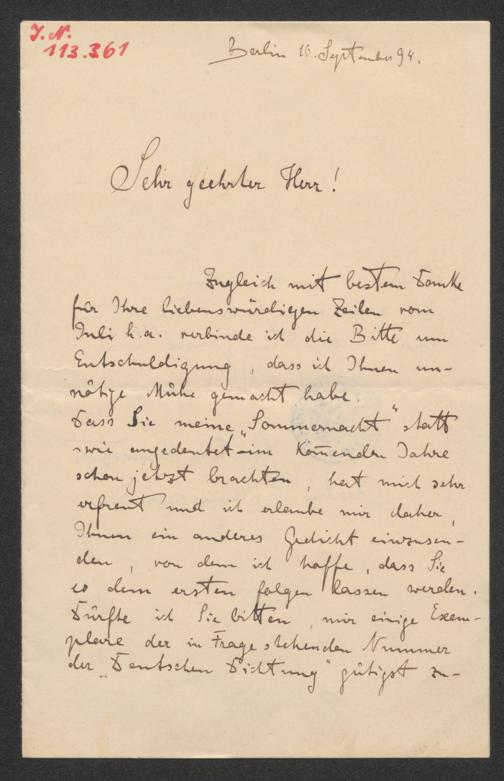 J. N.
113.361
Berlin 10. September 94.
Sehr geehrter Herr!
Zugleich mit bestem Danke
für Ihre liebenswürdigen Zeilen vom
Juli h. a. verbinde ich die Bitte um
Entschuldigung, dass ich Ihnen un-
nötige Mühe gemacht habe.
Dass Sie meine „Sommernacht" statt
wie angedeutet im kom̄enden Jahre
schon jetzt brachten, hat mich sehr
erfreut und ich erlaube mir daher,
Ihnen ein anderes Gedicht einzusen-
den, von dem ich hoffe, dass Sie
es dem ersten folgen lassen werden.
Dürfte ich Sie bitten, mir einige Exem-
plare der in Frage stehenden Nummer
der „Deutschen Dichtung" gütigst zu-